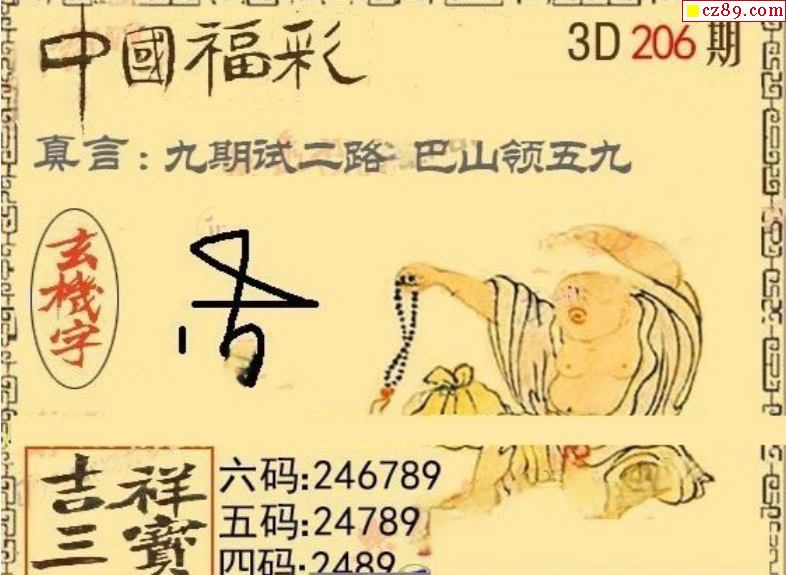 cz89.com
中國福彩
3D 206 期
真言：九期试二路 巴山领五九
玄機字
吉祥
三寳
六码:246789
五码:24789
四码:2489